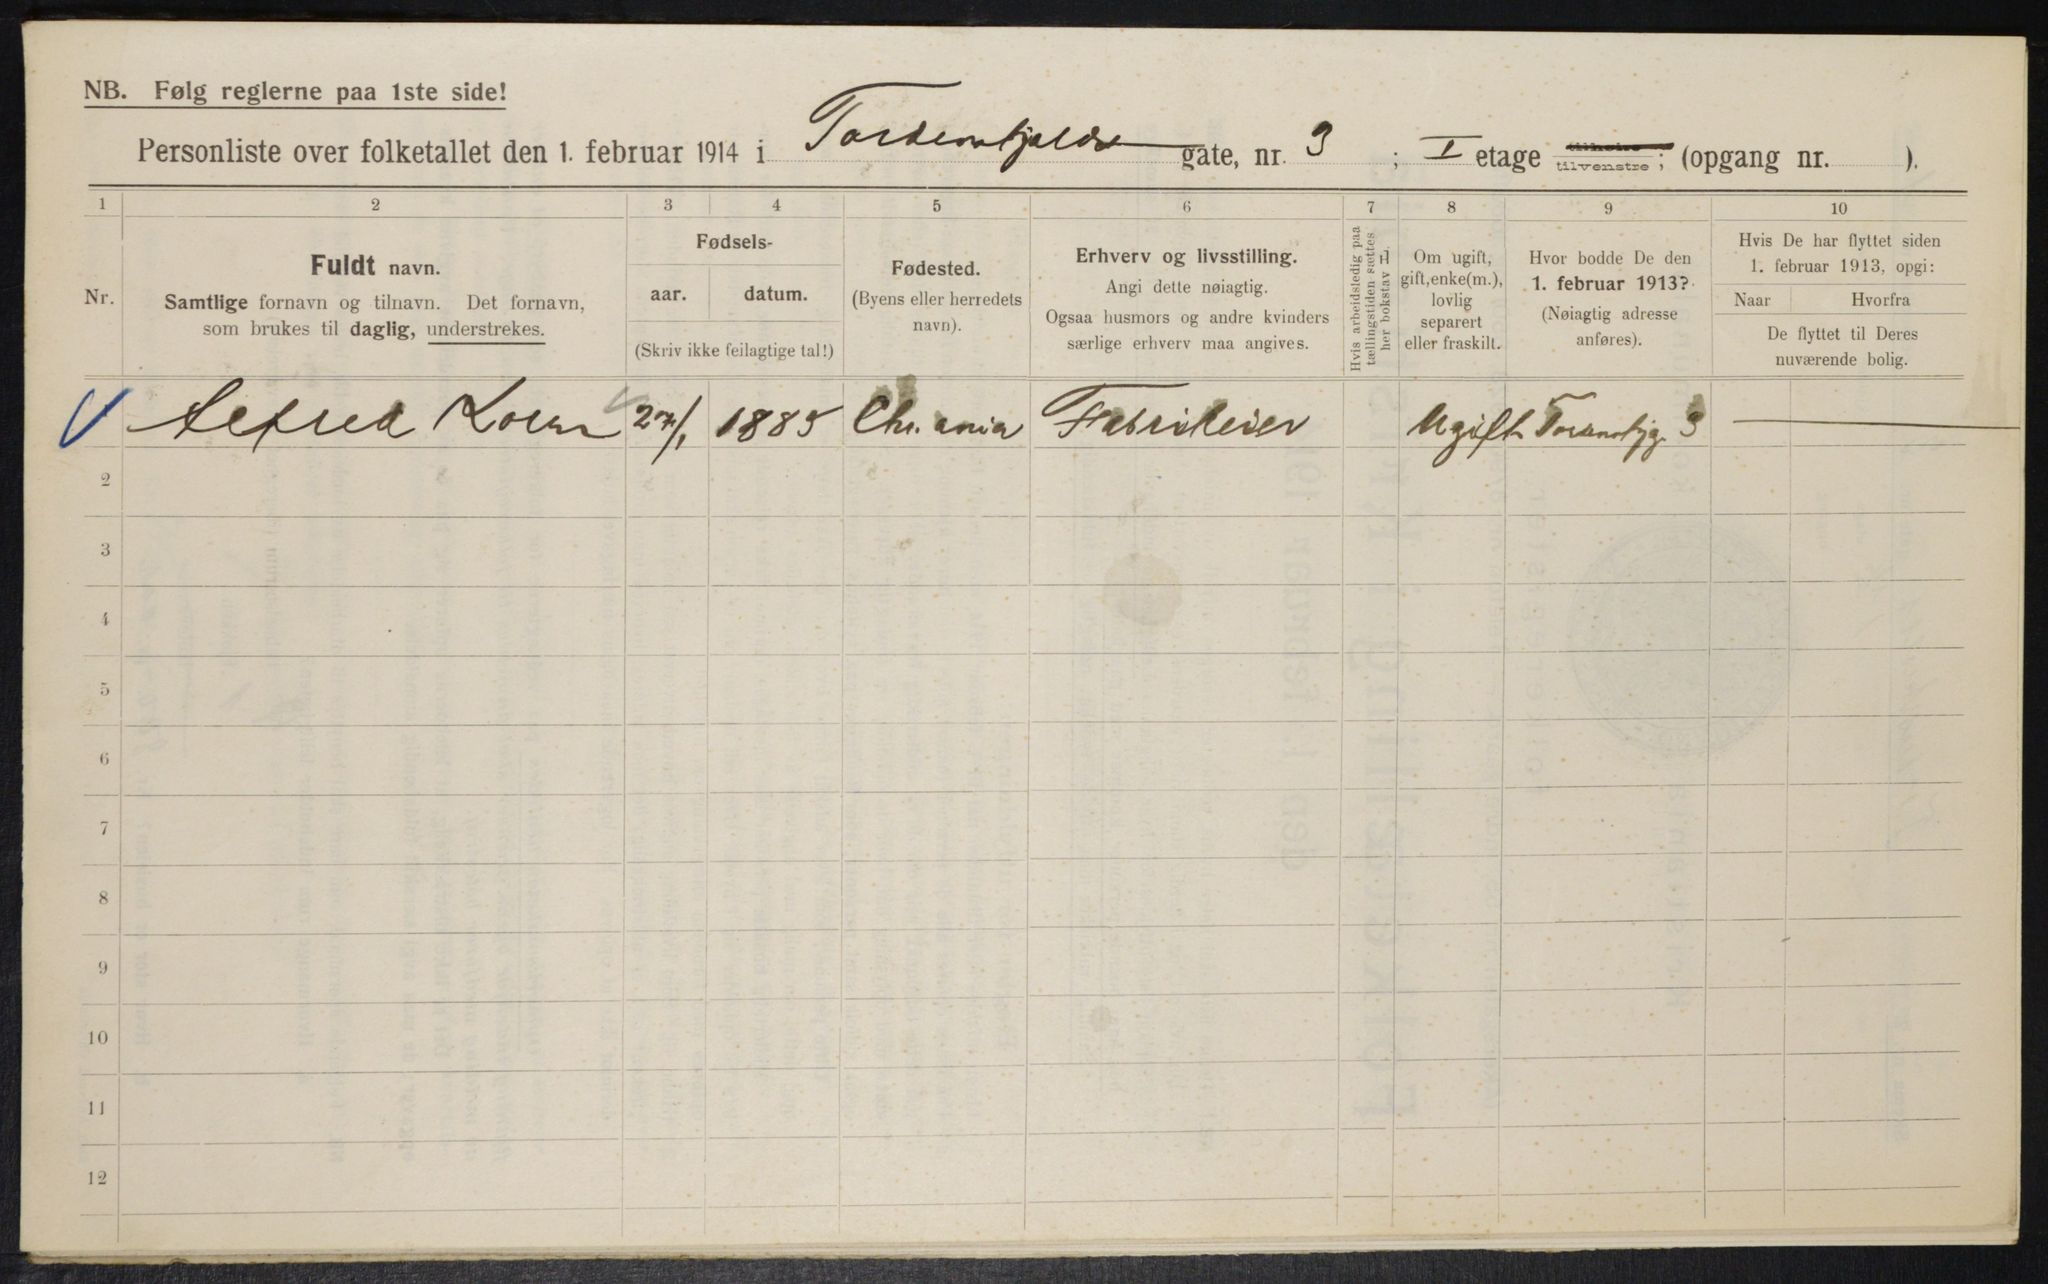 NB. Følg reglerne paa 1ste side!
Personliste over folketallet den 1. februar 1914 i Tordenskjolds gate, nr. 3 ; I etage tilvenstre ; (opgang nr. ).
1 2 3 4 5 6 7 8 9 10
Nr.
Fuldt navn.
Samtlige fornavn og tilnavn. Det fornavn,
som brukes til daglig, understrekes.
Fødsels-
aar. datum.
(Skriv ikke feilagtige tal!)
Fødested.
(Byens eller herredets
navn).
Erhverv og livsstilling.
Angi dette nøiagtig.
Ogsaa husmors og andre kvinders
særlige erhverv maa angives.
Hvis arbeidsledig paa
tællingstiden sættes
her bokstav L.
Om ugift,
gift, enke(m.),
lovlig
separert
eller fraskilt.
Hvor bodde De den
1. februar 1913?
(Nøiagtig adresse
anføres).
Hvis De har flyttet siden
1. februar 1913, opgi:
Naar Hvorfra
De flyttet til Deres
nuværende bolig.
Alfred 27/1 1885 Chr.ania Ugift 3
2
3
4
5
6
7
8
9
10
11
12